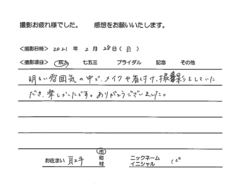 撮影お疲れ様でした。 感想をお願いいたします。
<撮影日時> 2021年 2月 28日(日)
<撮影項目> 成人 七五三 ブライダル 記念 その他
明るい雰囲気の中で、メイクや着付け、撮影をしていた
だき、楽しかったです。ありがとうございました。
お住まい 市 ニックネーム
町 イニシャル
村